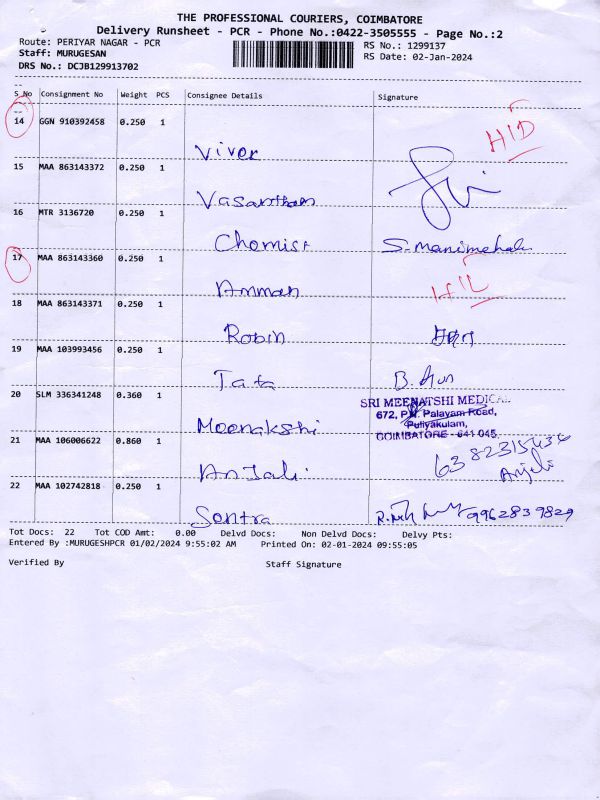 THE PROFESSIONAL COURIERS, COIMBATORE
Delivery Runsheet - PCR - Phone No.:0422-3505555 - Page No.:2
Route: PERIYAR NAGAR - PCR
RS No.: 1299137
Staff: MURUGESAN
RS Date: 02-Jan-2024
DRS No.: DCJB129913702
S No Consignment No Weight PCS Consignee Details Signature
14 GGN 910392458 0.250 1
HID
Viver
15 MAA 863143372 0.250 1
Vasantham
16 MTR 3136720 0.250 1
Chemist S. Manimehalai
17 MAA 863143360 0.250 1
Amman
18 MAA 863143371 0.250 1
Robin
19 MAA 103993456 0.250 1
Tata B. Arun
20 SLM 336341248 0.360 1
SRI MEENATSHI MEDICAL
672, P.N. Palayam Road,
Puliyakulam,
COIMBATORE - 641 045.
Meenakshi
21 MAA 106006622 0.860 1
6382315436
Anjali Anjali
22 MAA 102742818 0.250 1
Sentra 9962839829
Tot Docs: 22 Tot COD Amt: 0.00 Delvd Docs: Non Delvd Docs: Delvy Pts:
Entered By :MURUGESHPCR 01/02/2024 9:55:02 AM Printed On: 02-01-2024 09:55:05
Verified By Staff Signature